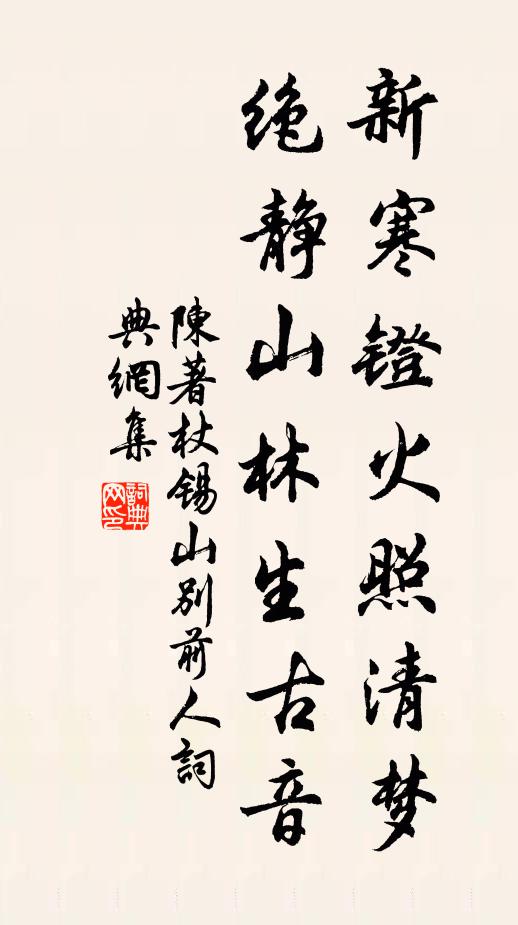 新寒镫火照清梦
绝静山林生古音
陳著杖锡山别前人詞
典網集
詞典网印